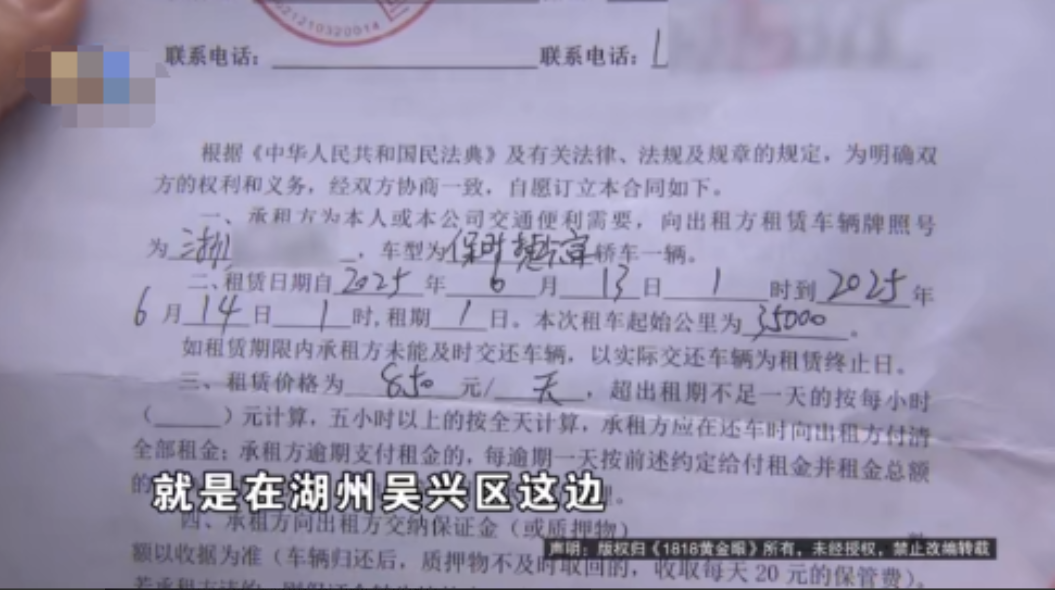 21210320014
联系电话：联系电话：
根据《中华人民共和国民法典》及有关法律、法规及规章的规定，为明确双
方的权利和义务，经双方协商一致，自愿订立本合同如下。
一、承租方为本人或本公司交通便利需要，向出租方租赁车辆牌照号
为浙，车型为保时捷轿车一辆。
二、租赁日期自2025年6月13日1时到2025年
6月14日1时，租期1日。本次租车起始公里为35000。
如租赁期限内承租方未能及时交还车辆，以实际交还车辆为租赁终止日。
三、租赁价格为850元/天，超出租期不足一天的按每小时
（____）元计算，五小时以上的按全天计算，承租方应在还车时向出租方付清
全部租金；承租方逾期支付租金的，每逾期一天按前述约定给付租金并租金总额
的
就是在湖州吴兴区这边
四、承租方向出租方交纳保证金（或质押物）
声明：版权归《1818黄金眼》所有，未经授权，禁止改编转载
额以收据为准（车辆归还后，质押物不及时取回的，收取每天20元的保管费）。